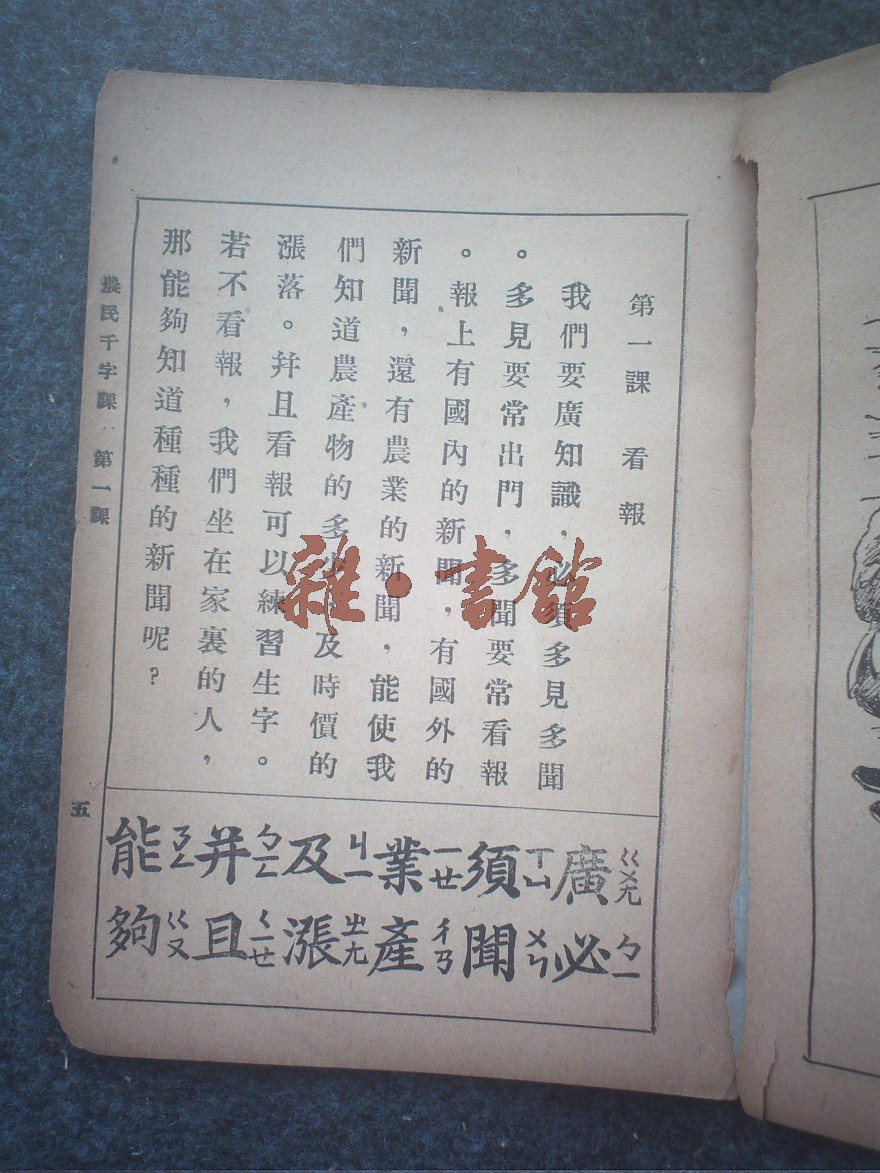 第一課 看報
我們要廣知識，必須多見多聞
。多見要常出門，多聞要常看報
。報上有國內的新聞，有國外的
新聞，還有農業的新聞，能使我
們知道農產物的多少，及時價的
漲落。并且看報可以練習生字。
若不看報，我們坐在家裏的人，
那能夠知道種種的新聞呢？
廣ㄍㄨㄤ 必ㄅㄧ
須ㄒㄩ 聞ㄨㄣ
業ㄧㄝ 產ㄔㄢ
及ㄐㄧ 漲ㄓㄤ
并ㄅㄧㄥ 且ㄑㄧㄝ
能ㄋㄥ 夠ㄍㄡ
農民千字課 第一課
五
雜·書館